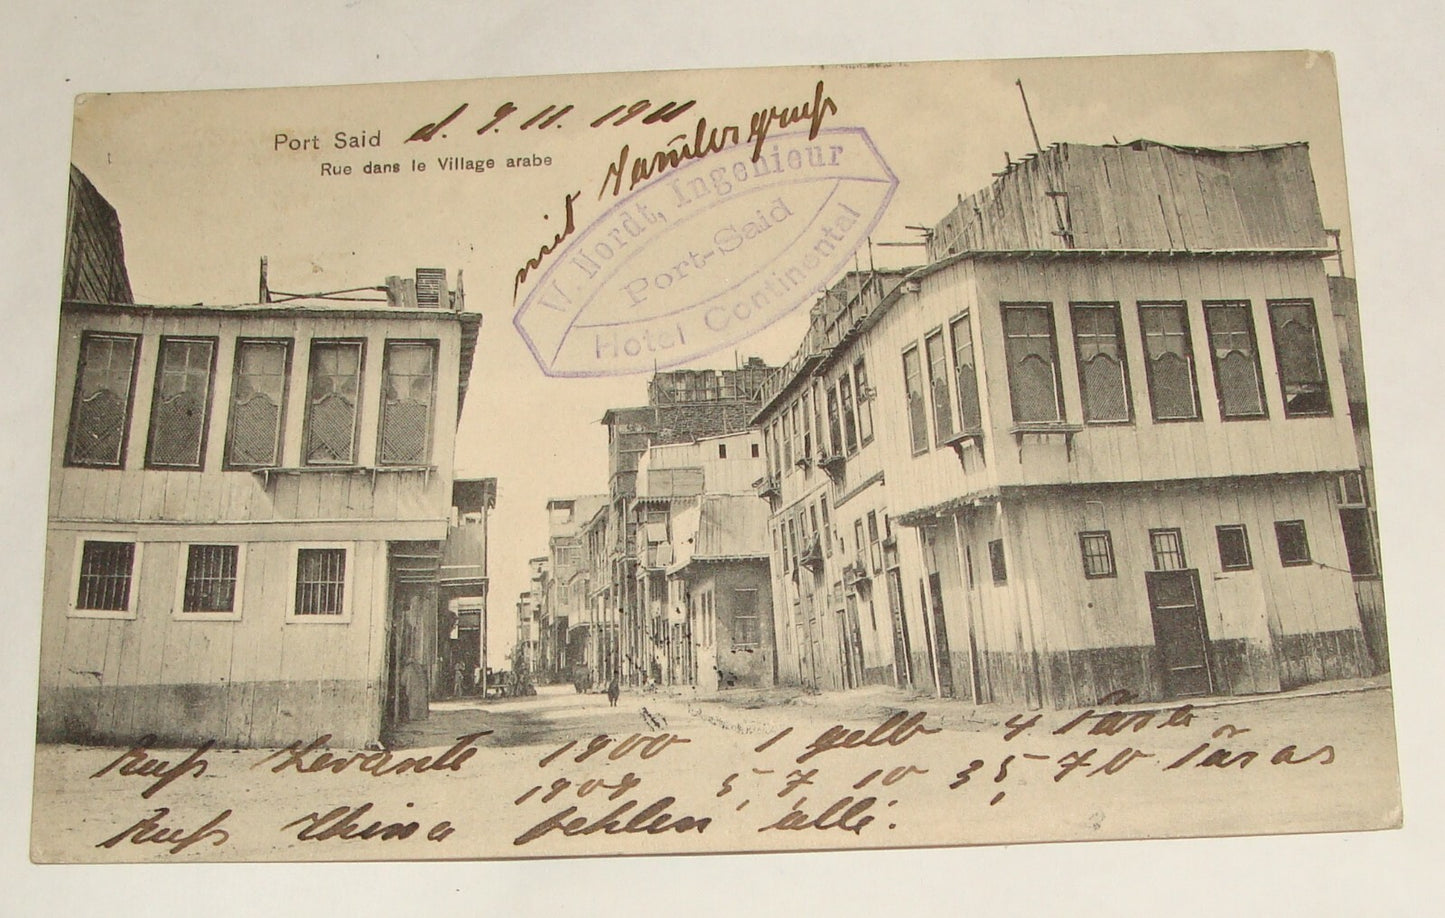 Port Said
Rue dans le Village arabe
d. 9. 11. 1911
mit Samlergruß
W. Nordt, Ingenieur
Port-Said
Hotel Continental
Ruß Levante 1900 1 gelb 4 Para
1909 5, 7, 10 35, 70 Paras
Ruß China fehlen alle.